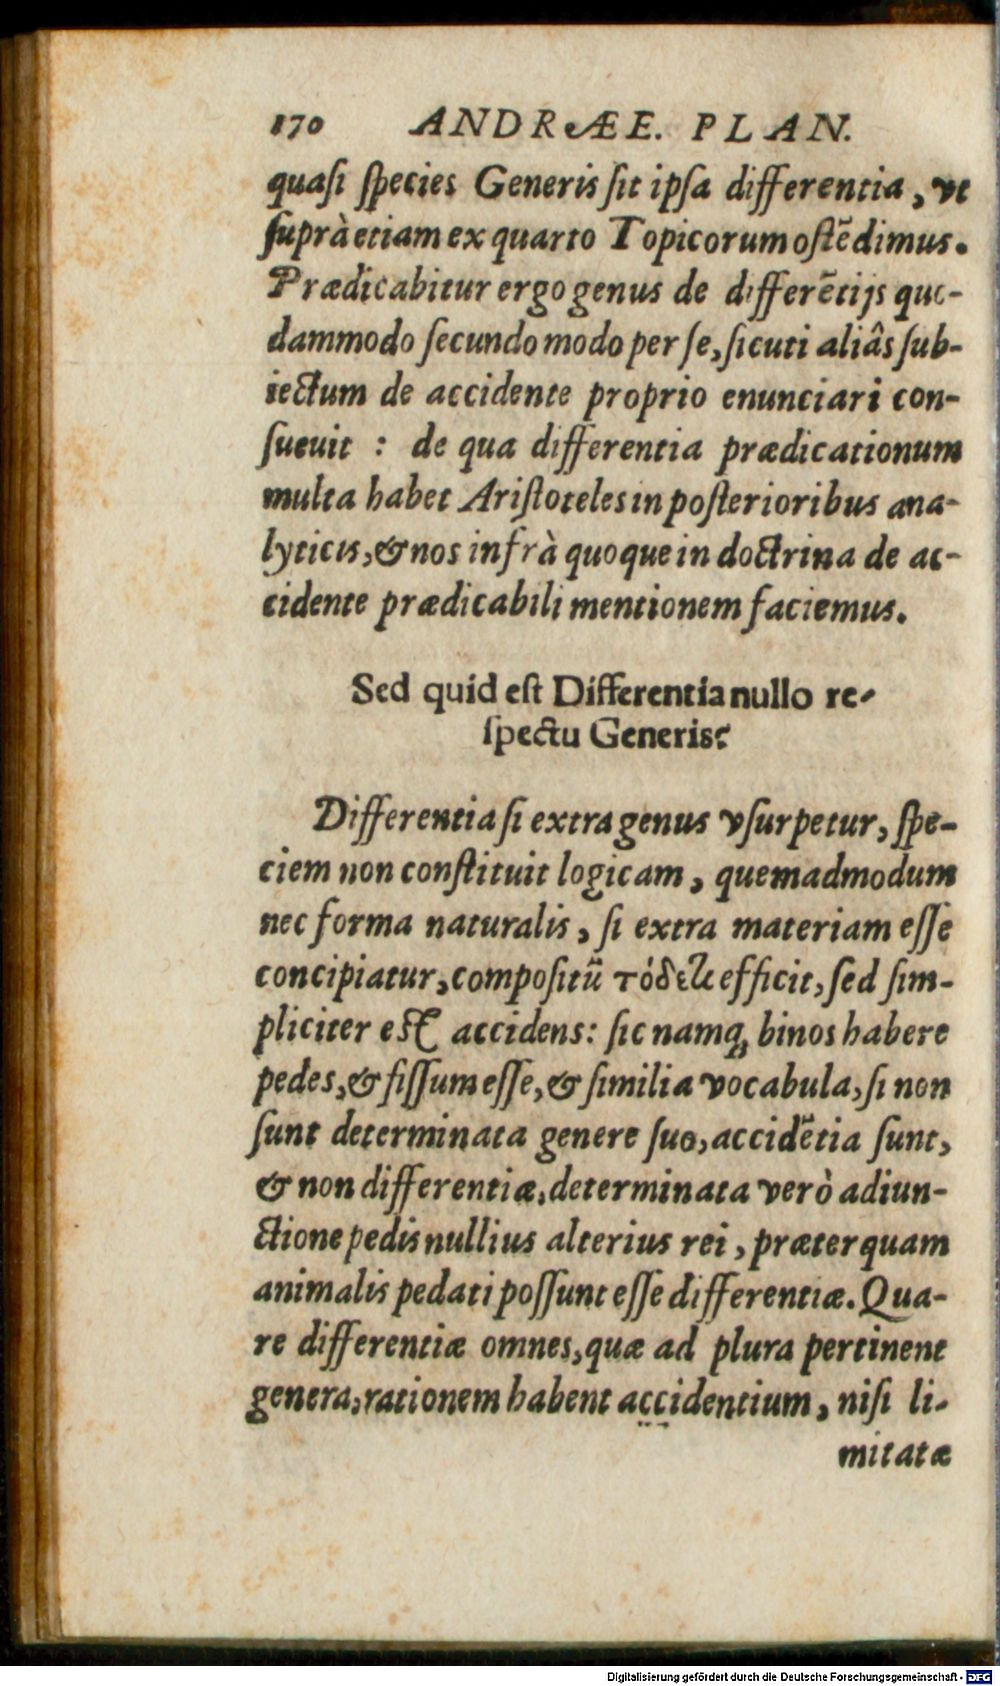 170 ANDRÆE. PLAN.
quaſi ſpecies Generis ſit ipſa differentia, vt
ſuprà etiam ex quarto Topicorum oſtēdimus.
Prædicabitur ergo genus de differētijs quo-
dammodo ſecundo modo per ſe, ſicuti aliâs ſub-
iectum de accidente proprio enunciari con-
ſueuit : de qua differentia prædicationum
multa habet Ariſtoteles in poſterioribus ana-
lyticis, & nos infrà quoque in doctrina de ac-
cidente prædicabili mentionem faciemus.
Sed quid eſt Differentia nullo re-
ſpectu Generis?
Differentia ſi extra genus vſurpetur, ſpe-
ciem non conſtituit logicam, quemadmodum
nec forma naturalis, ſi extra materiam eſſe
concipiatur, compoſitū τόδε τι efficit, ſed ſim-
pliciter eſt accidens: ſic namq; binos habere
pedes, & fiſſum eſſe, & ſimilia vocabula, ſi non
ſunt determinata genere ſuo, accidētia ſunt,
& non differentiæ, determinata verò adiun-
ctione pedis nullius alterius rei, præterquam
animalis pedati poſſunt eſſe differentiæ. Qua-
re differentiæ omnes, quæ ad plura pertinent
genera, rationem habent accidentium, niſi li-
mitatæ
Digitalisierung gefördert durch die Deutsche Forschungsgemeinschaft - DFG